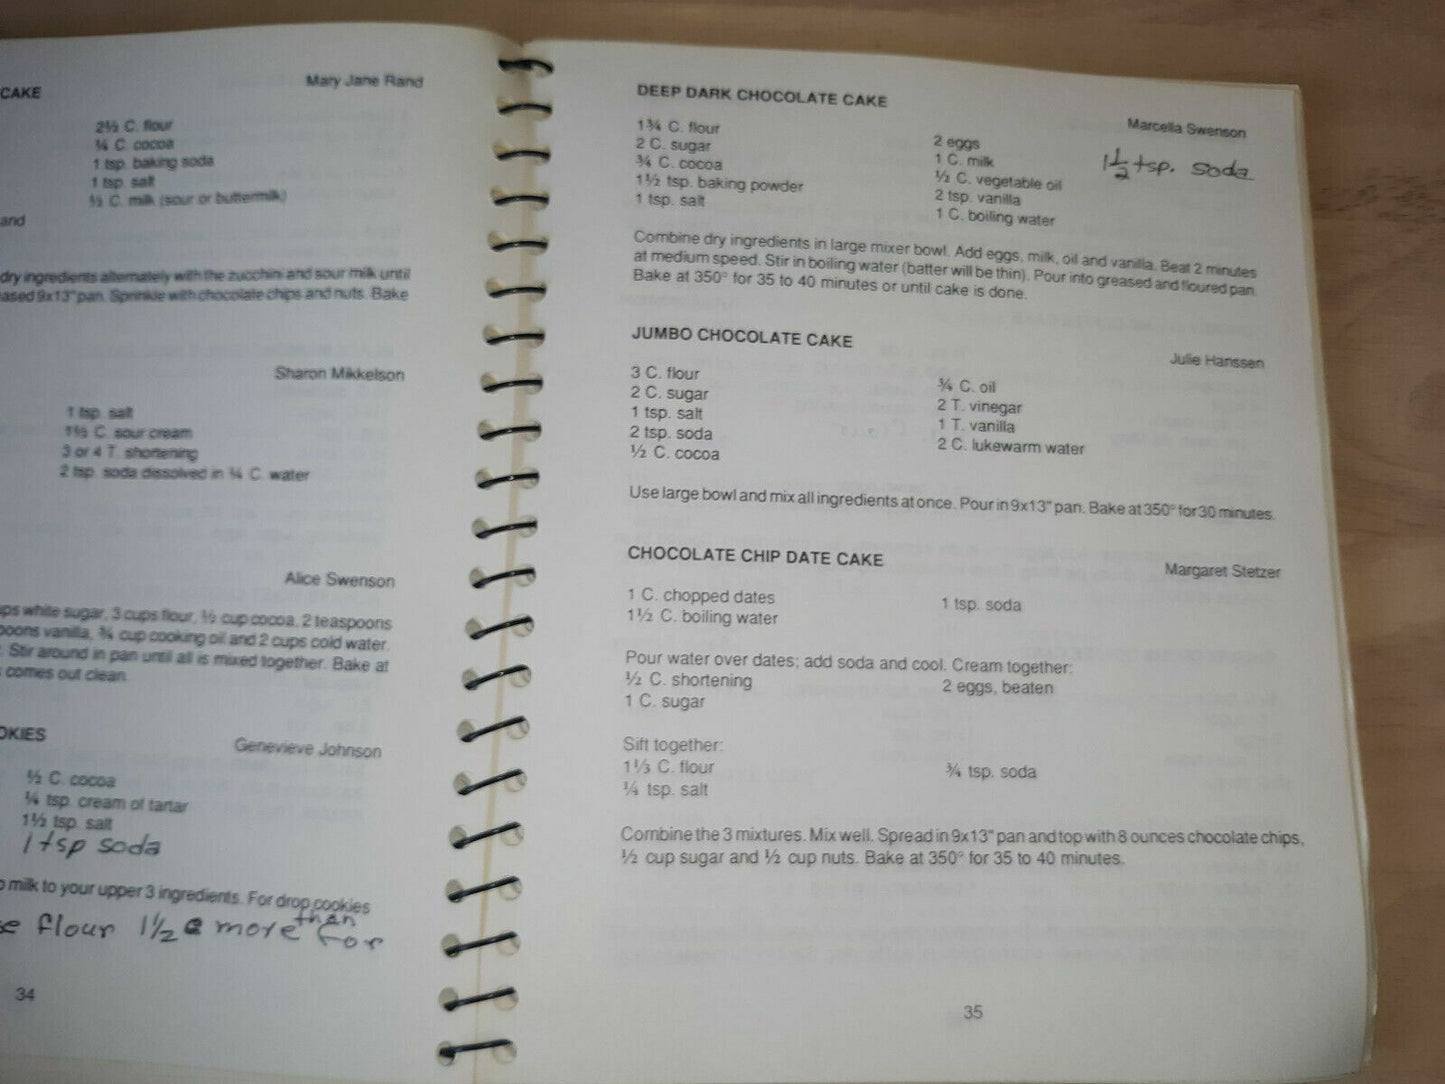 CAKE
Mary Jane Rand
2½ C. flour
¼ C. cocoa
1 tsp. baking soda
1 tsp. salt
½ C. milk (sour or buttermilk)
and
dry ingredients alternately with the zucchini and sour milk until
ased 9x13" pan. Sprinkle with chocolate chips and nuts. Bake
Sharon Mikkelson
1 tsp. salt
C. sour cream
3 or 4 T. shortening
2 tsp. soda dissolved in ¼ C. water
Alice Swenson
ps white sugar, 3 cups flour, ½ cup cocoa, 2 teaspoons
poons vanilla, ¾ cup cooking oil and 2 cups cold water.
Stir around in pan until all is mixed together. Bake at
comes out clean.
OKIES
Genevieve Johnson
½ C. cocoa
¼ tsp. cream of tartar
1½ tsp. salt
1 tsp soda
milk to your upper 3 ingredients. For drop cookies
se flour 1½ c more than for
34
DEEP DARK CHOCOLATE CAKE
Marcella Swenson
1¾ C. flour
2 C. sugar
¾ C. cocoa
1½ tsp. baking powder
1 tsp. salt
2 eggs
1 C. milk
½ C. vegetable oil
2 tsp. vanilla
1 C. boiling water
1½ tsp. soda
Combine dry ingredients in large mixer bowl. Add eggs, milk, oil and vanilla. Beat 2 minutes
at medium speed. Stir in boiling water (batter will be thin). Pour into greased and floured pan.
Bake at 350° for 35 to 40 minutes or until cake is done.
JUMBO CHOCOLATE CAKE
Julie Hanssen
3 C. flour
2 C. sugar
1 tsp. salt
2 tsp. soda
½ C. cocoa
¾ C. oil
2 T. vinegar
1 T. vanilla
2 C. lukewarm water
Use large bowl and mix all ingredients at once. Pour in 9x13" pan. Bake at 350° for 30 minutes.
CHOCOLATE CHIP DATE CAKE
Margaret Stetzer
1 C. chopped dates
1½ C. boiling water
1 tsp. soda
Pour water over dates; add soda and cool. Cream together:
½ C. shortening
1 C. sugar
2 eggs, beaten
Sift together:
1⅓ C. flour
¼ tsp. salt
¾ tsp. soda
Combine the 3 mixtures. Mix well. Spread in 9x13" pan and top with 8 ounces chocolate chips,
½ cup sugar and ½ cup nuts. Bake at 350° for 35 to 40 minutes.
35